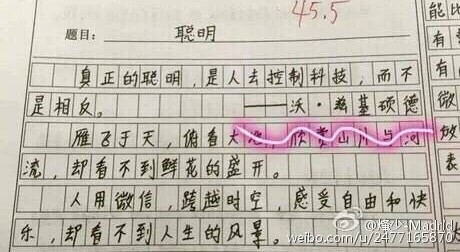 45.5
题目：聪明
真正的聪明，是人去控制科技，而不
是相反。 ——沃·兹基硕德
雁飞于天，俯看大地，欣赏山川与河
流，却看不到鲜花的盛开。
人用微信，跨越时空，感受自由和快
乐，却看不到人生的风景。
能比
有
微
放
表
@烽少-Madrid
weibo.com/u/2477165870